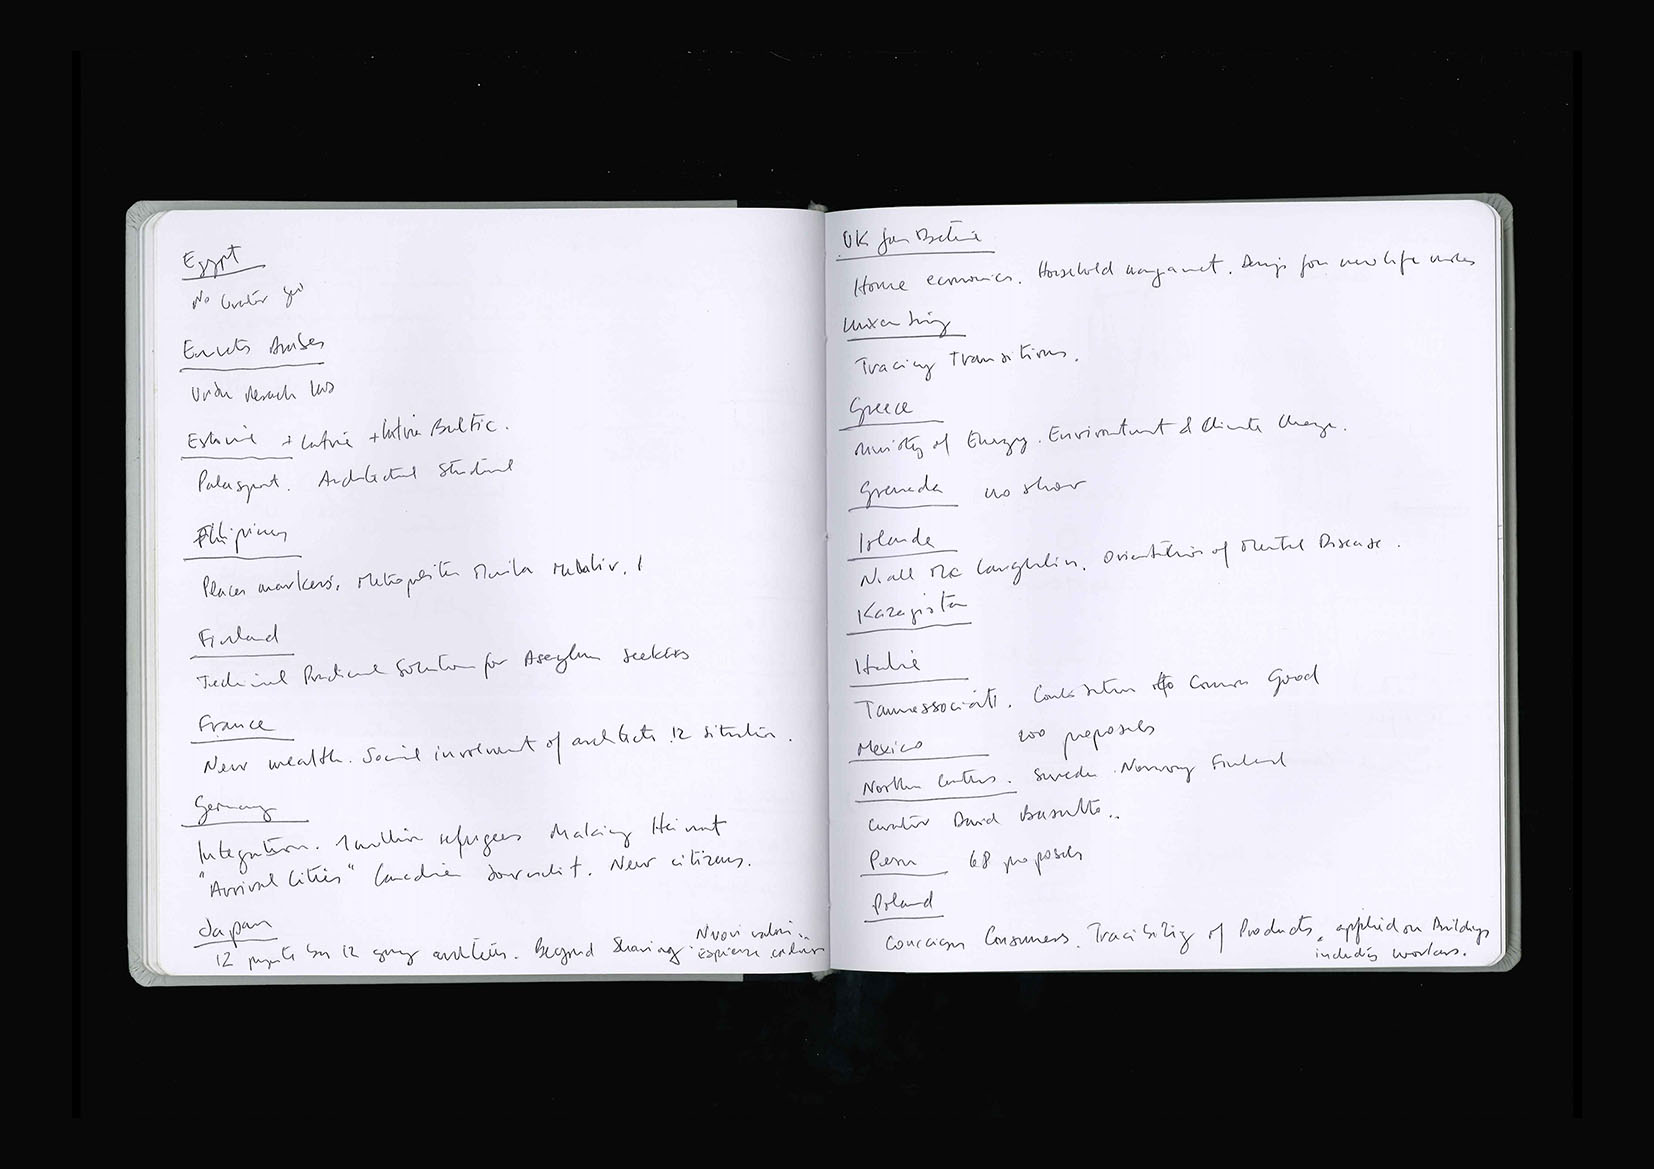 Egypt
No Curator yet
Emirats Arabes
Urban research
Estonie + Latvie + Baltic.
Palasport. Architectural Structural
Philipines
Places markers. Metropolitan Manila
Finland
Technical Practical Solution for Aseylum seekers
France
New wealth. Social involment of architects 12 situation.
Germany
Integration. 1 million refugees Making Heimat
"Arrival Cities" Canadien Journalist. New citizens.
Japan
12 projects by 12 young architects. Beyond Sharing. Nuovi valori..
UK
Home economics. Household Design for new life modes
Tracing Transitions.
Greece
Ministry of Energy. Environtment & Climate Change.
Grenada no show
Irlande
Niall Mc Laughlin. Orientation of Mental Disease.
Kazagistan
Italie
Tamassociati. Contribution to Common Good
Mexico 200 proposals
Northern Countries. Sweden. Norway Finland
Curator David Basulto..
Peru 68 proposals
Poland
Consumers. Tracibility of Products, applied on Buildings
includes workers.